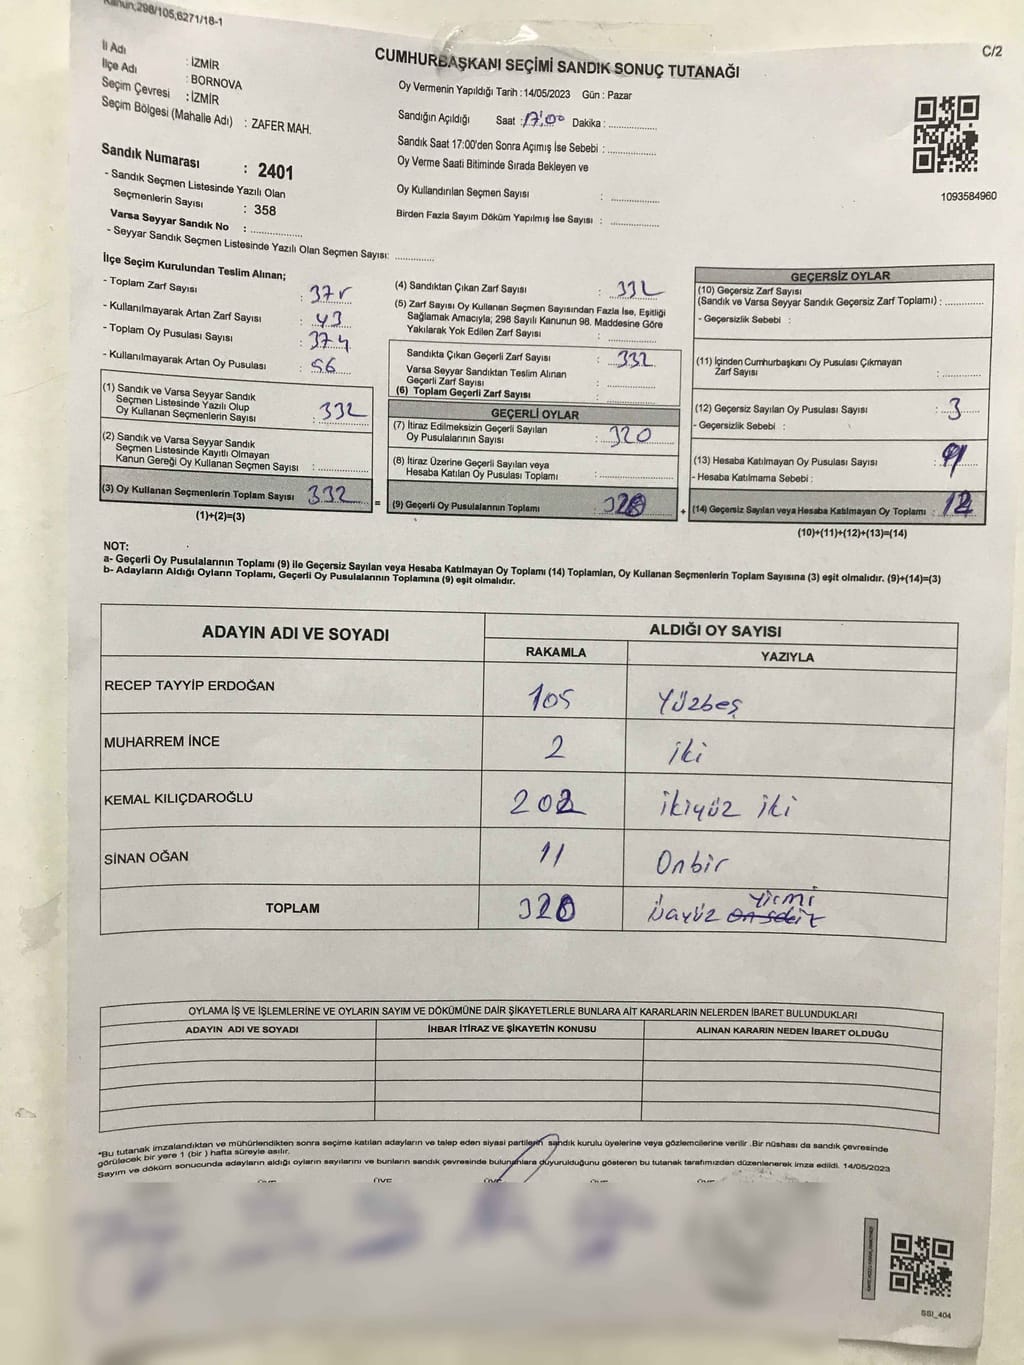 Kanun;298/105,6271/18-1
C/2
İl Adı : İZMİR
İlçe Adı : BORNOVA
Seçim Çevresi : İZMİR
Seçim Bölgesi (Mahalle Adı) : ZAFER MAH.
Sandık Numarası : 2401
- Sandık Seçmen Listesinde Yazılı Olan
Seçmenlerin Sayısı : 358
Varsa Seyyar Sandık No : ..............
- Seyyar Sandık Seçmen Listesinde Yazılı Olan Seçmen Sayısı: ............
CUMHURBAŞKANI SEÇİMİ SANDIK SONUÇ TUTANAĞI
Oy Vermenin Yapıldığı Tarih : 14/05/2023 Gün : Pazar
Sandığın Açıldığı Saat : 17:00 Dakika : ..............
Sandık Saat 17:00'den Sonra Açımış İse Sebebi : ..............
Oy Verme Saati Bitiminde Sırada Bekleyen ve
Oy Kullandırılan Seçmen Sayısı : ..............
Birden Fazla Sayım Döküm Yapılmış İse Sayısı : ..............
1093584960
İlçe Seçim Kurulundan Teslim Alınan;
- Toplam Zarf Sayısı :
- Kullanılmayarak Artan Zarf Sayısı : 43
- Toplam Oy Pusulası Sayısı : 374
- Kullanılmayarak Artan Oy Pusulası : 56
(1) Sandık ve Varsa Seyyar Sandık
Seçmen Listesinde Yazılı Olup
Oy Kullanan Seçmenlerin Sayısı : 332
(2) Sandık ve Varsa Seyyar Sandık
Seçmen Listesinde Kayıtlı Olmayan
Kanun Gereği Oy Kullanan Seçmen Sayısı : ..............
(3) Oy Kullanan Seçmenlerin Toplam Sayısı : 332 =
(1)+(2)=(3)
(4) Sandıktan Çıkan Zarf Sayısı : 332
(5) Zarf Sayısı Oy Kullanan Seçmen Sayısından Fazla İse, Eşitliği
Sağlamak Amacıyla; 298 Sayılı Kanunun 98. Maddesine Göre
Yakılarak Yok Edilen Zarf Sayısı : ..............
Sandıkta Çıkan Geçerli Zarf Sayısı : 332
Varsa Seyyar Sandıktan Teslim Alınan
Geçerli Zarf Sayısı : ..............
(6) Toplam Geçerli Zarf Sayısı : ..............
GEÇERLİ OYLAR
(7) İtiraz Edilmeksizin Geçerli Sayılan
Oy Pusulalarının Sayısı : 320
(8) İtiraz Üzerine Geçerli Sayılan veya
Hesaba Katılan Oy Pusulası Toplamı : ..............
(9) Geçerli Oy Pusulalarının Toplamı : 320 +
GEÇERSİZ OYLAR
(10) Geçersiz Zarf Sayısı
(Sandık ve Varsa Seyyar Sandık Geçersiz Zarf Toplamı) : ..............
- Geçersizlik Sebebi :
(11) İçinden Cumhurbaşkanı Oy Pusulası Çıkmayan
Zarf Sayısı : ..............
(12) Geçersiz Sayılan Oy Pusulası Sayısı : 3
- Geçersizlik Sebebi :
(13) Hesaba Katılmayan Oy Pusulası Sayısı : 9
- Hesaba Katılmama Sebebi :
(14) Geçersiz Sayılan veya Hesaba Katılmayan Oy Toplamı : 12
(10)+(11)+(12)+(13)=(14)
NOT:
a- Geçerli Oy Pusulalarının Toplamı (9) ile Geçersiz Sayılan veya Hesaba Katılmayan Oy Toplamı (14) Toplamları, Oy Kullanan Seçmenlerin Toplam Sayısına (3) eşit olmalıdır. (9)+(14)=(3)
b- Adayların Aldığı Oyların Toplamı, Geçerli Oy Pusulalarının Toplamına (9) eşit olmalıdır.
ADAYIN ADI VE SOYADI ALDIĞI OY SAYISI
RAKAMLA YAZIYLA
RECEP TAYYİP ERDOĞAN 105 Yüzbeş
MUHARREM İNCE 2 iki
KEMAL KILIÇDAROĞLU 202 ikiyüz iki
SİNAN OĞAN 11 Onbir
TOPLAM 320 Üçyüz onsekiz yirmi
OYLAMA İŞ VE İŞLEMLERİNE VE OYLARIN SAYIM VE DÖKÜMÜNE DAİR ŞİKAYETLERLE BUNLARA AİT KARARLARIN NELERDEN İBARET BULUNDUKLARI
ADAYIN ADI VE SOYADI İHBAR İTİRAZ VE ŞİKAYETİN KONUSU ALINAN KARARIN NEDEN İBARET OLDUĞU
*Bu tutanak imzalandıktan ve mühürlendikten sonra seçime katılan adayların ve talep eden siyasi partilerin sandık kurulu üyelerine veya gözlemcilerine verilir .Bir nüshası da sandık çevresinde
görülecek bir yere 1 (bir ) hafta süreyle asılır.
Sayım ve döküm sonucunda adayların aldığı oyların sayılarını ve bunların sandık çevresinde bulunanlara duyurulduğunu gösteren bu tutanak tarafımızdan düzenlenerek imza edildi. 14/05/2023
SSI_404